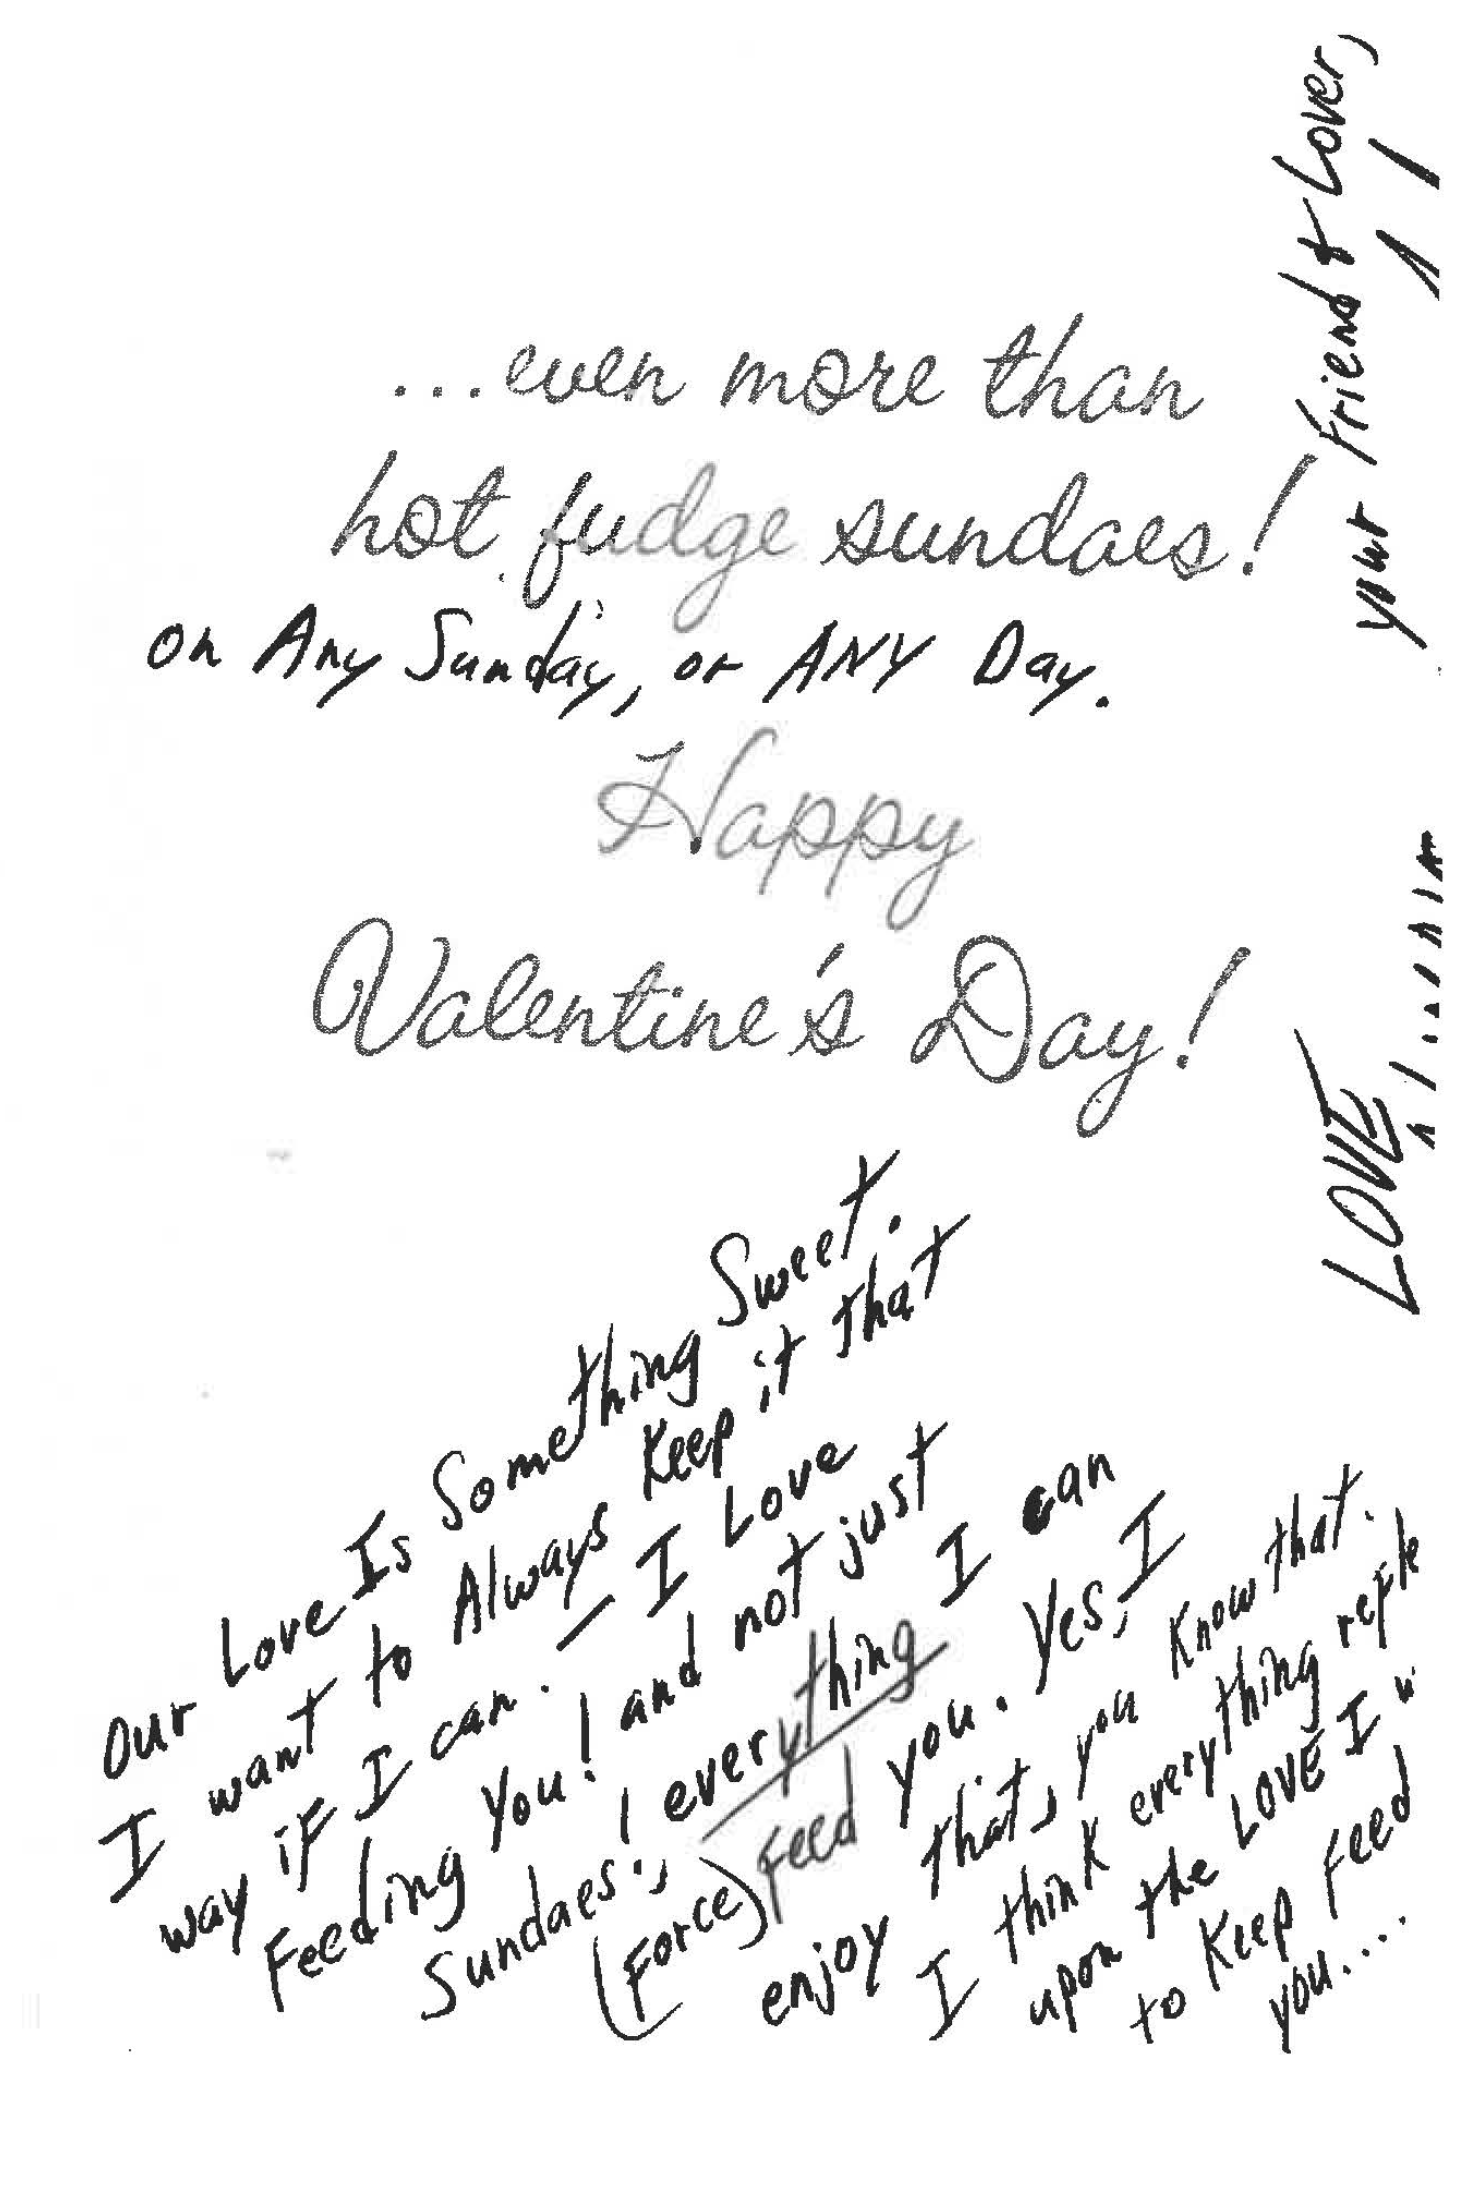 ...even more than
hot fudge sundaes!
on Any Sunday, or ANY Day.
Happy
Valentine's Day!
Our Love Is Something Sweet.
I want to Always Keep it that
way if I can. — I Love
Feeding You! and not just
Sundaes., everything I can
(Force) Feed you. Yes, I
enjoy that, you know that.
I think everything
upon the LOVE I
to Keep Feed
you...
LOVE
your Friend & Lover,